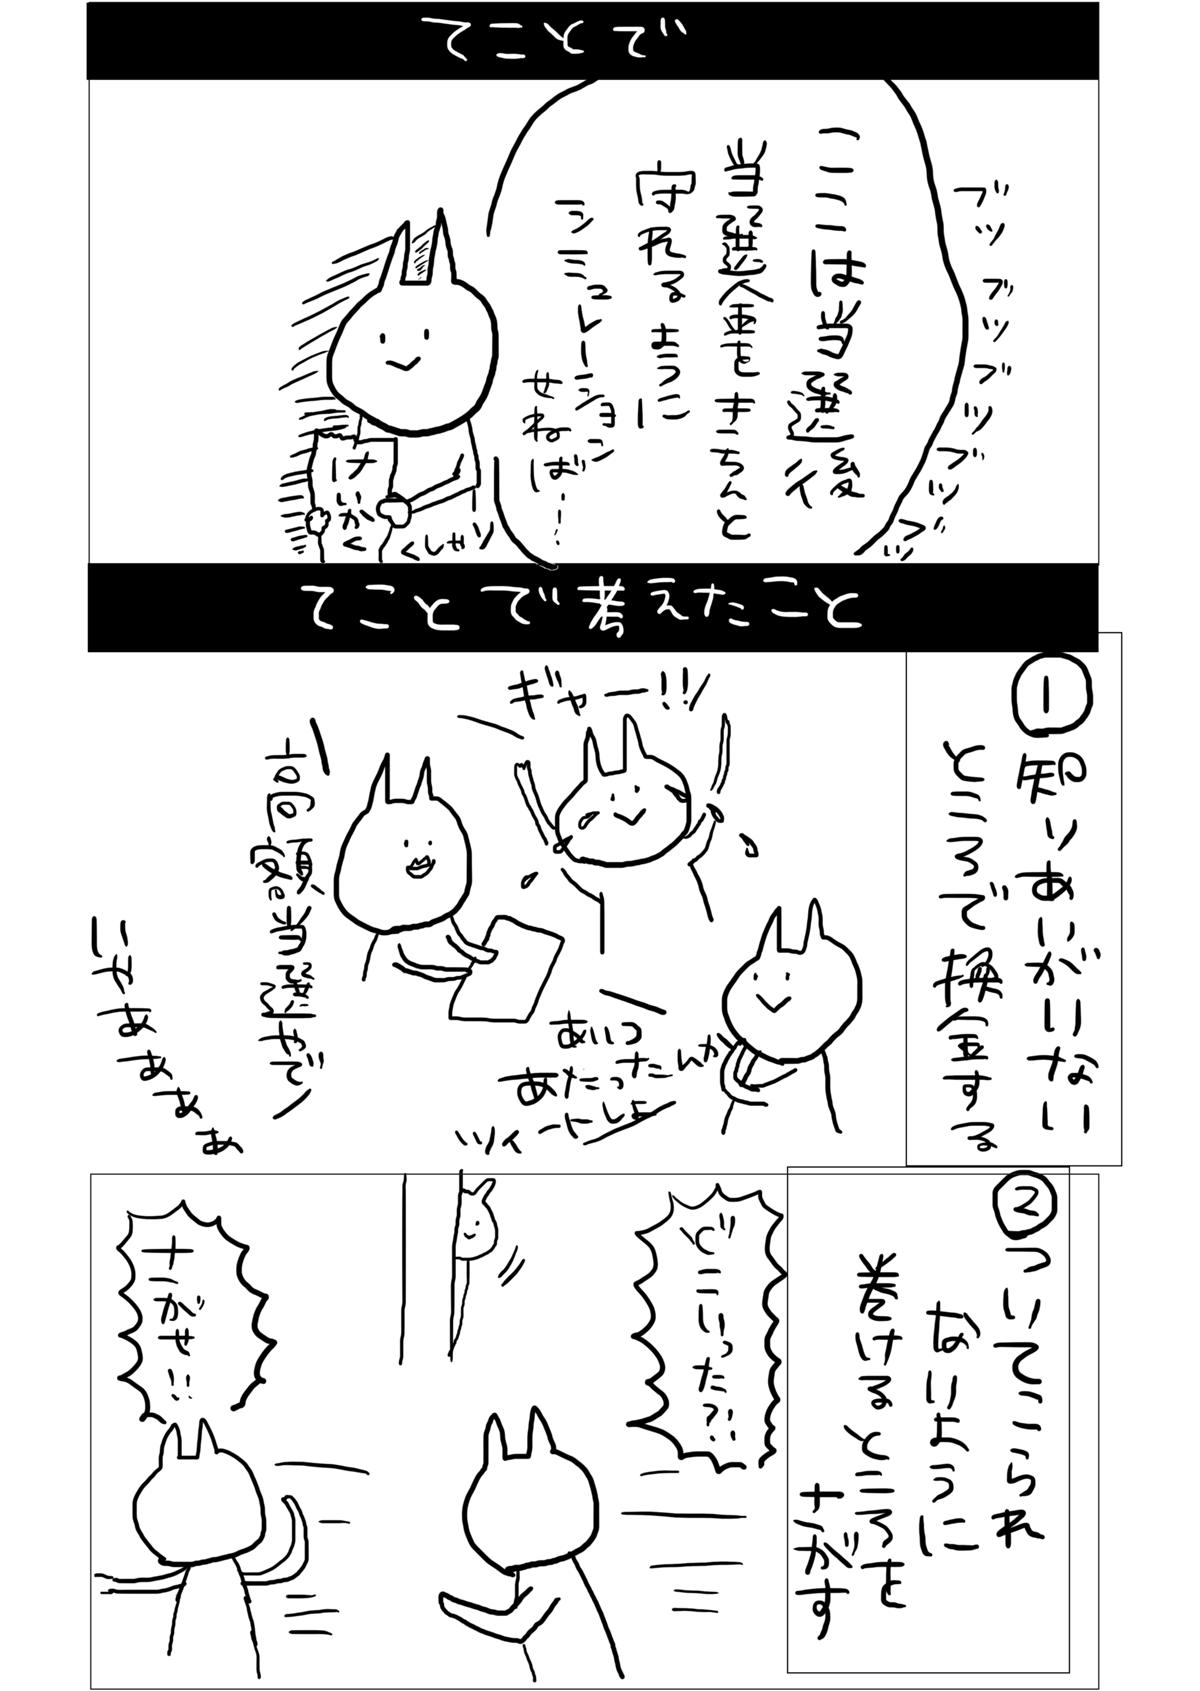 てことで
ブツブツブツブツブツ
ここは当選後
当選金をきちんと
守れるように
シミュレーション
せねば…!
けいかく
くしゃり
てことで考えたこと
①知りあいがいない
ところで換金する
ギャー!!
高額当選やで
あいつ
あたったんか
ツイートしよ
いやぁぁぁぁ
②ついてこられ
ないように
巻けるところを
さがす
どこいった?!
さがせ!!